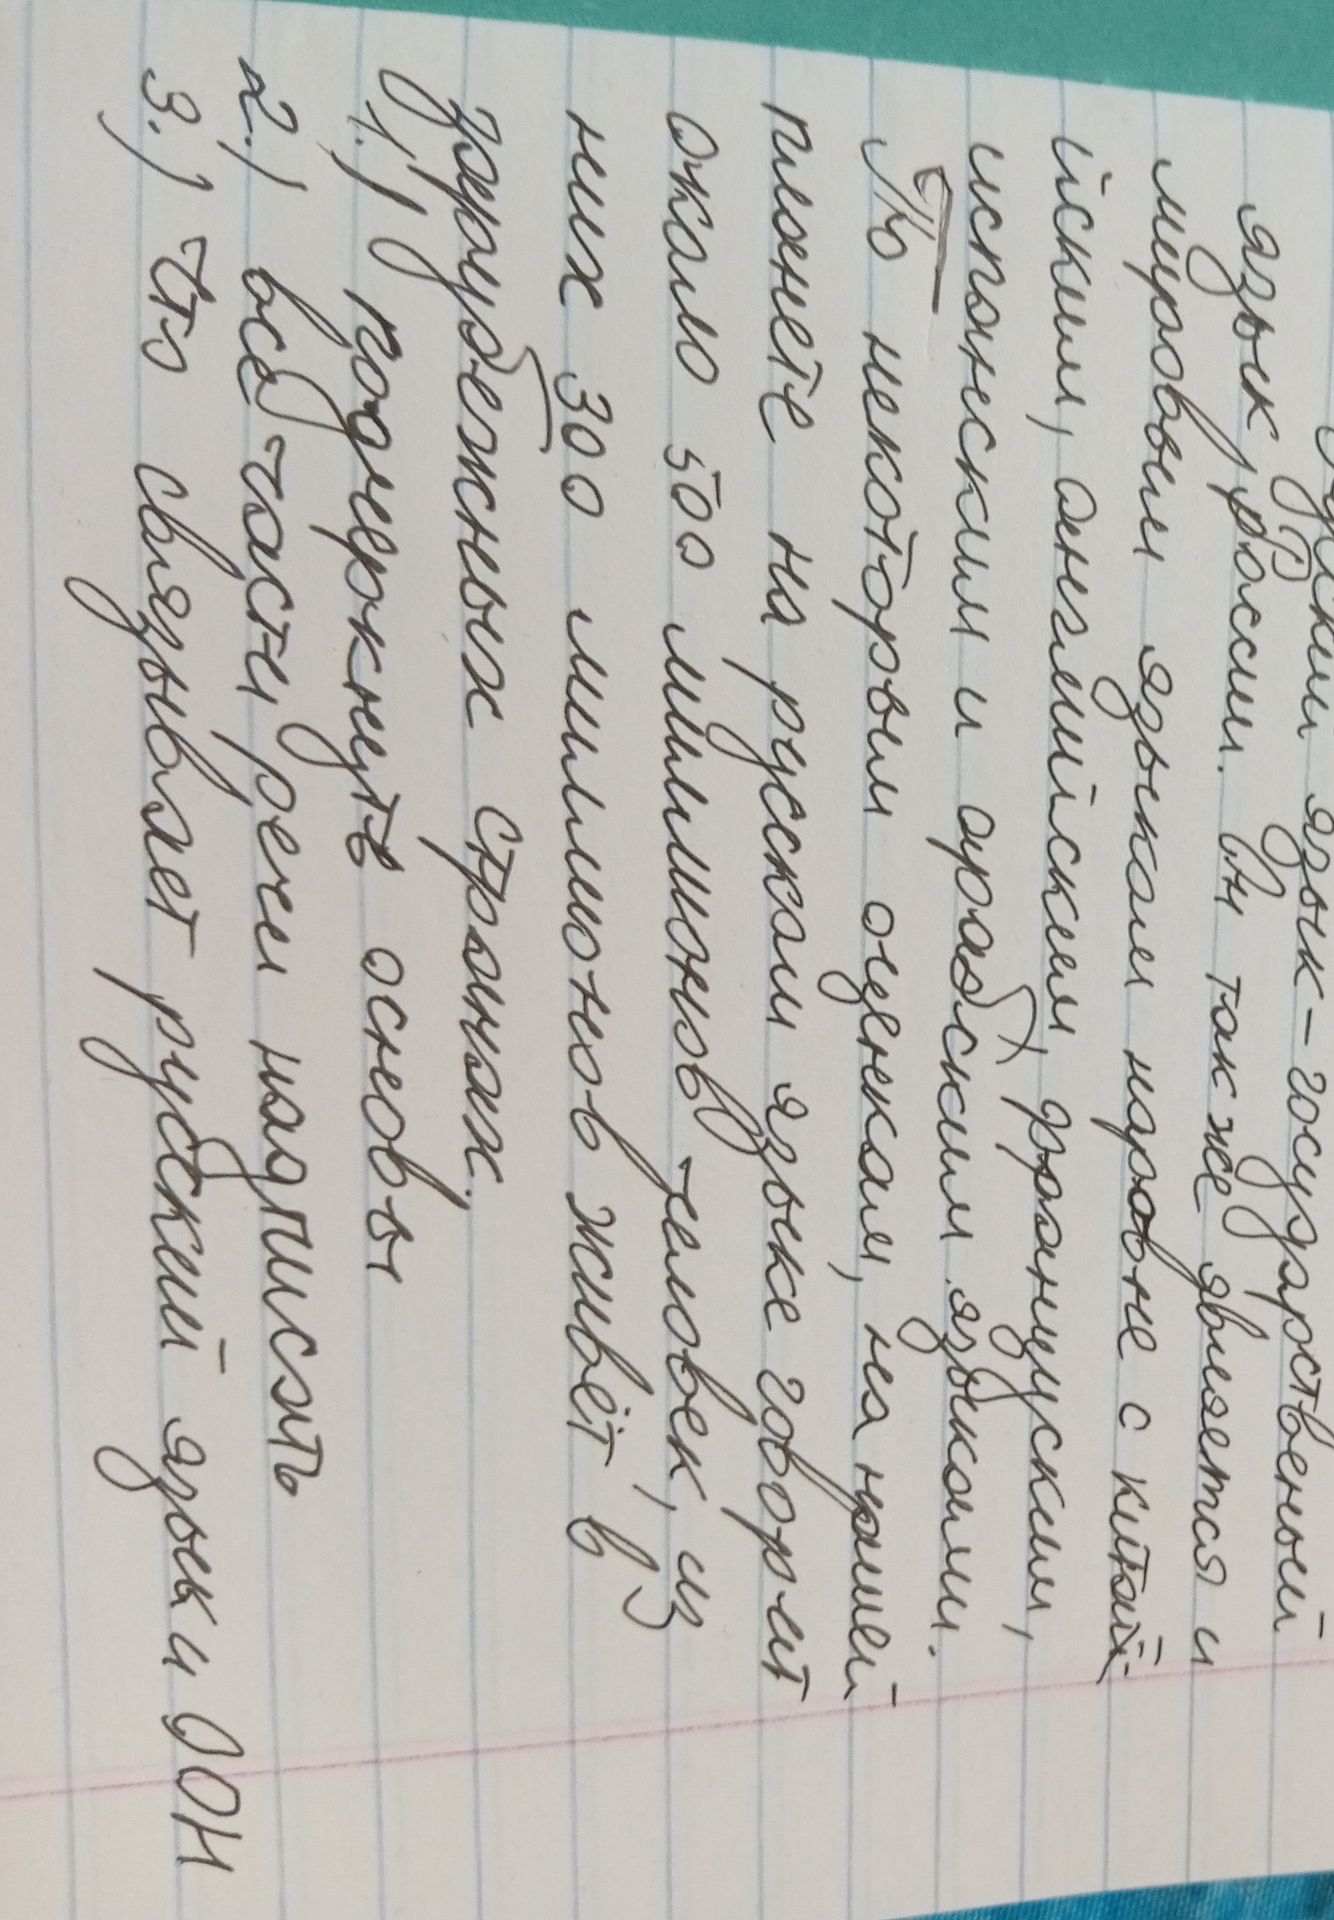 Русский язык - государственный
язык России. Он также является и
мировым языком наравне с китай
йским, английским, французским,
испанским и арабским языками.
По некоторым оценкам, на нашей
планете на русском языке говорит
окало 500 миллионов человек, из
них 300 миллионов живёт в
зарубежных странах.
1.) подчеркнуть основы
2.) все части речи надписать
3.) что связывает русский язык и ООН